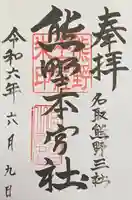 奉拝
名取熊野三社
熊野本宮社
令和六年
六月九日